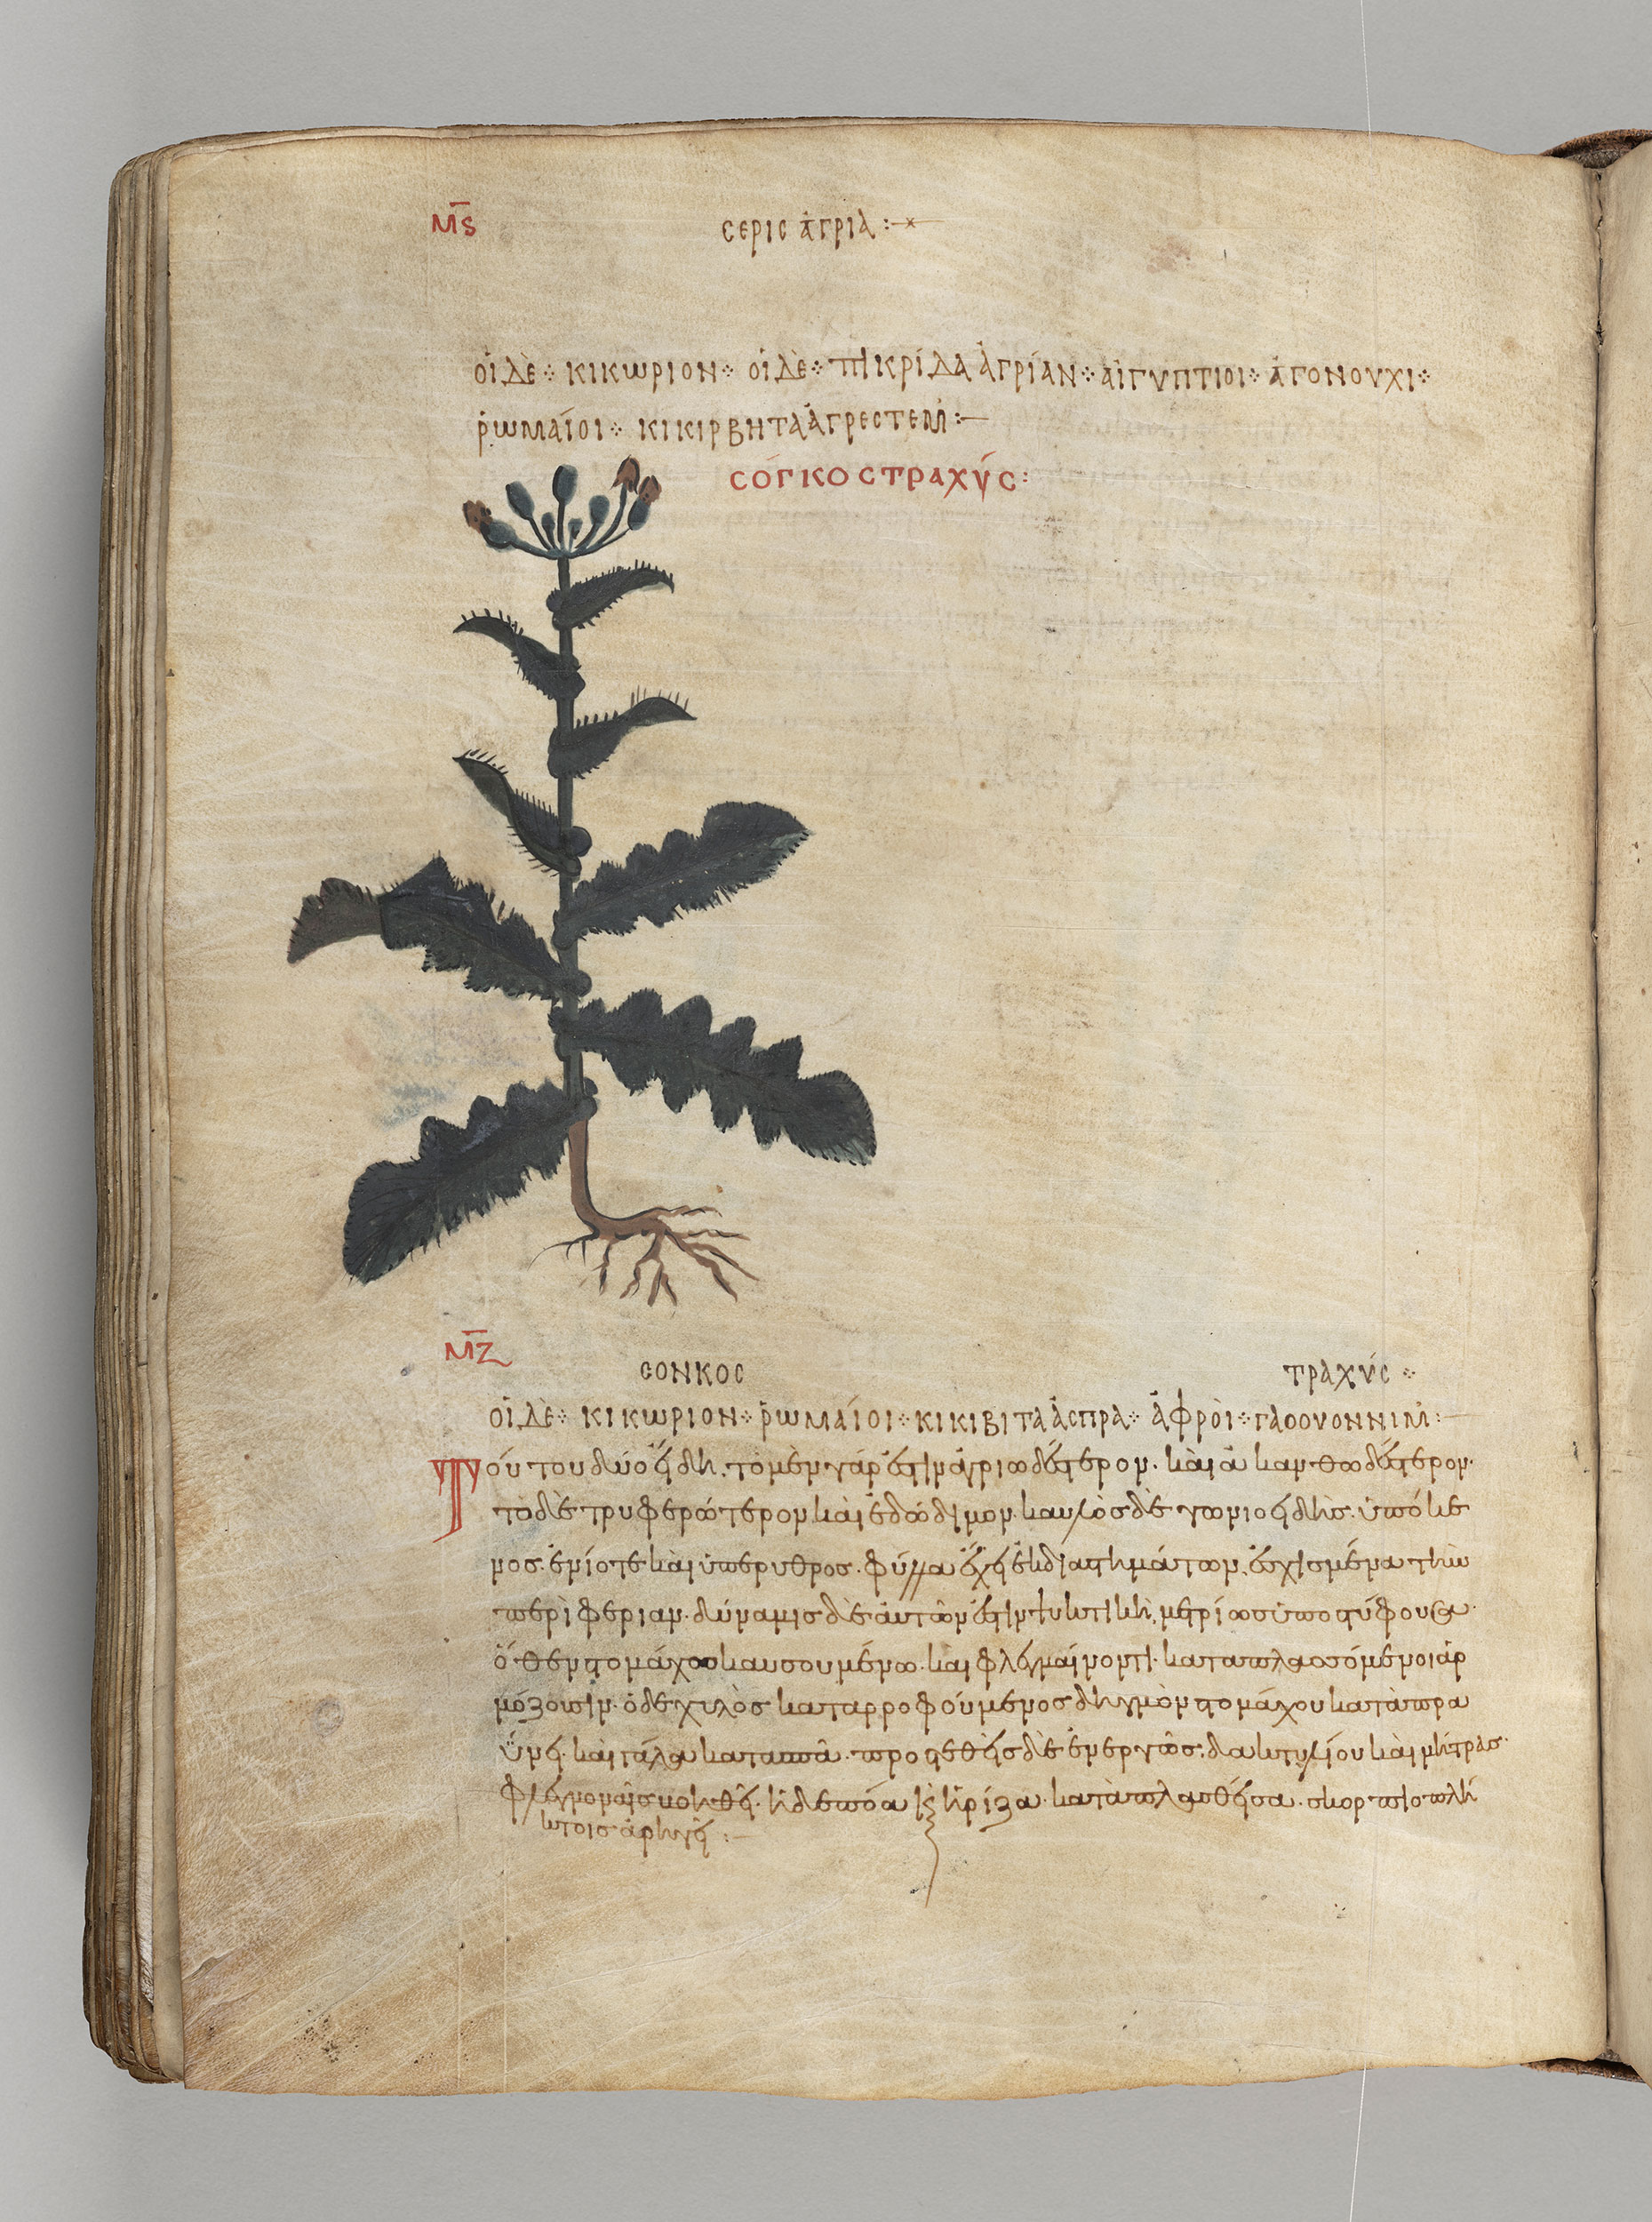 Μ̅Ϛ
σερις ἀγρια :
οἱ δὲ ⁘ κικωριον ⁘ οἱ δὲ ⁘ πικρίδα ἀγρίαν ⁘ αἰγυπτιοι ⁘ ἀγονουχι ⁘
ῥωμαίοι ⁘ κικιρβητα ἀγρεστεμ :
σόγκος τραχύς :
Μ̅Ζ
σονκος τραχύς ⁘
οἱ δὲ ⁘ κικωριον ⁘ ῥωμαίοι ⁘ κικιβιτα ἀσπρα ⁘ ἀφροὶ ⁘ γαθουοννιμ :
τούτου δύο εἴδη. τὸ μὲν γάρ ἐστιν ἀγριωδέστερον. καὶ ἀκανθωδέστερον.
τὸ δὲ τρυφερώτερον καὶ ἐδώδιμον. καυλὸς δὲ γωνιοειδὴς. ὑπόκε
νος. ἐνίοτε καὶ ὑπερυθρος. φύλλα ἔχει ἐκ διαστημάτων. ἐσχισμένα την
περὶφεριαν. δύναμις δὲ ἀυτῶν ἐστιν ψυκτικὴ, μετρίως ὑποστύφουσα.
ὅθεν στομάχω καυσουμένω. καὶ φλεγμαίνοντι. καταπλασσόμενοι ἁρ
μόζουσιν. ὁ δε χυλὸς καταρροφούμενος δηγμὸν στομάχου κατὰπρα
ΰνει. καὶ γάλα κατασπᾶ. προστεθεὶς δὲ ἐν εργῶς. δακτυλίου καὶ μήτρας
φλεγμοναῖς βοηθεῖ. ἡ δε πόα κὶ ἡ ρίζα. κατὰπλασθεῖσα. σκορπιοπλή
κτοις ἀρηγεῖ :